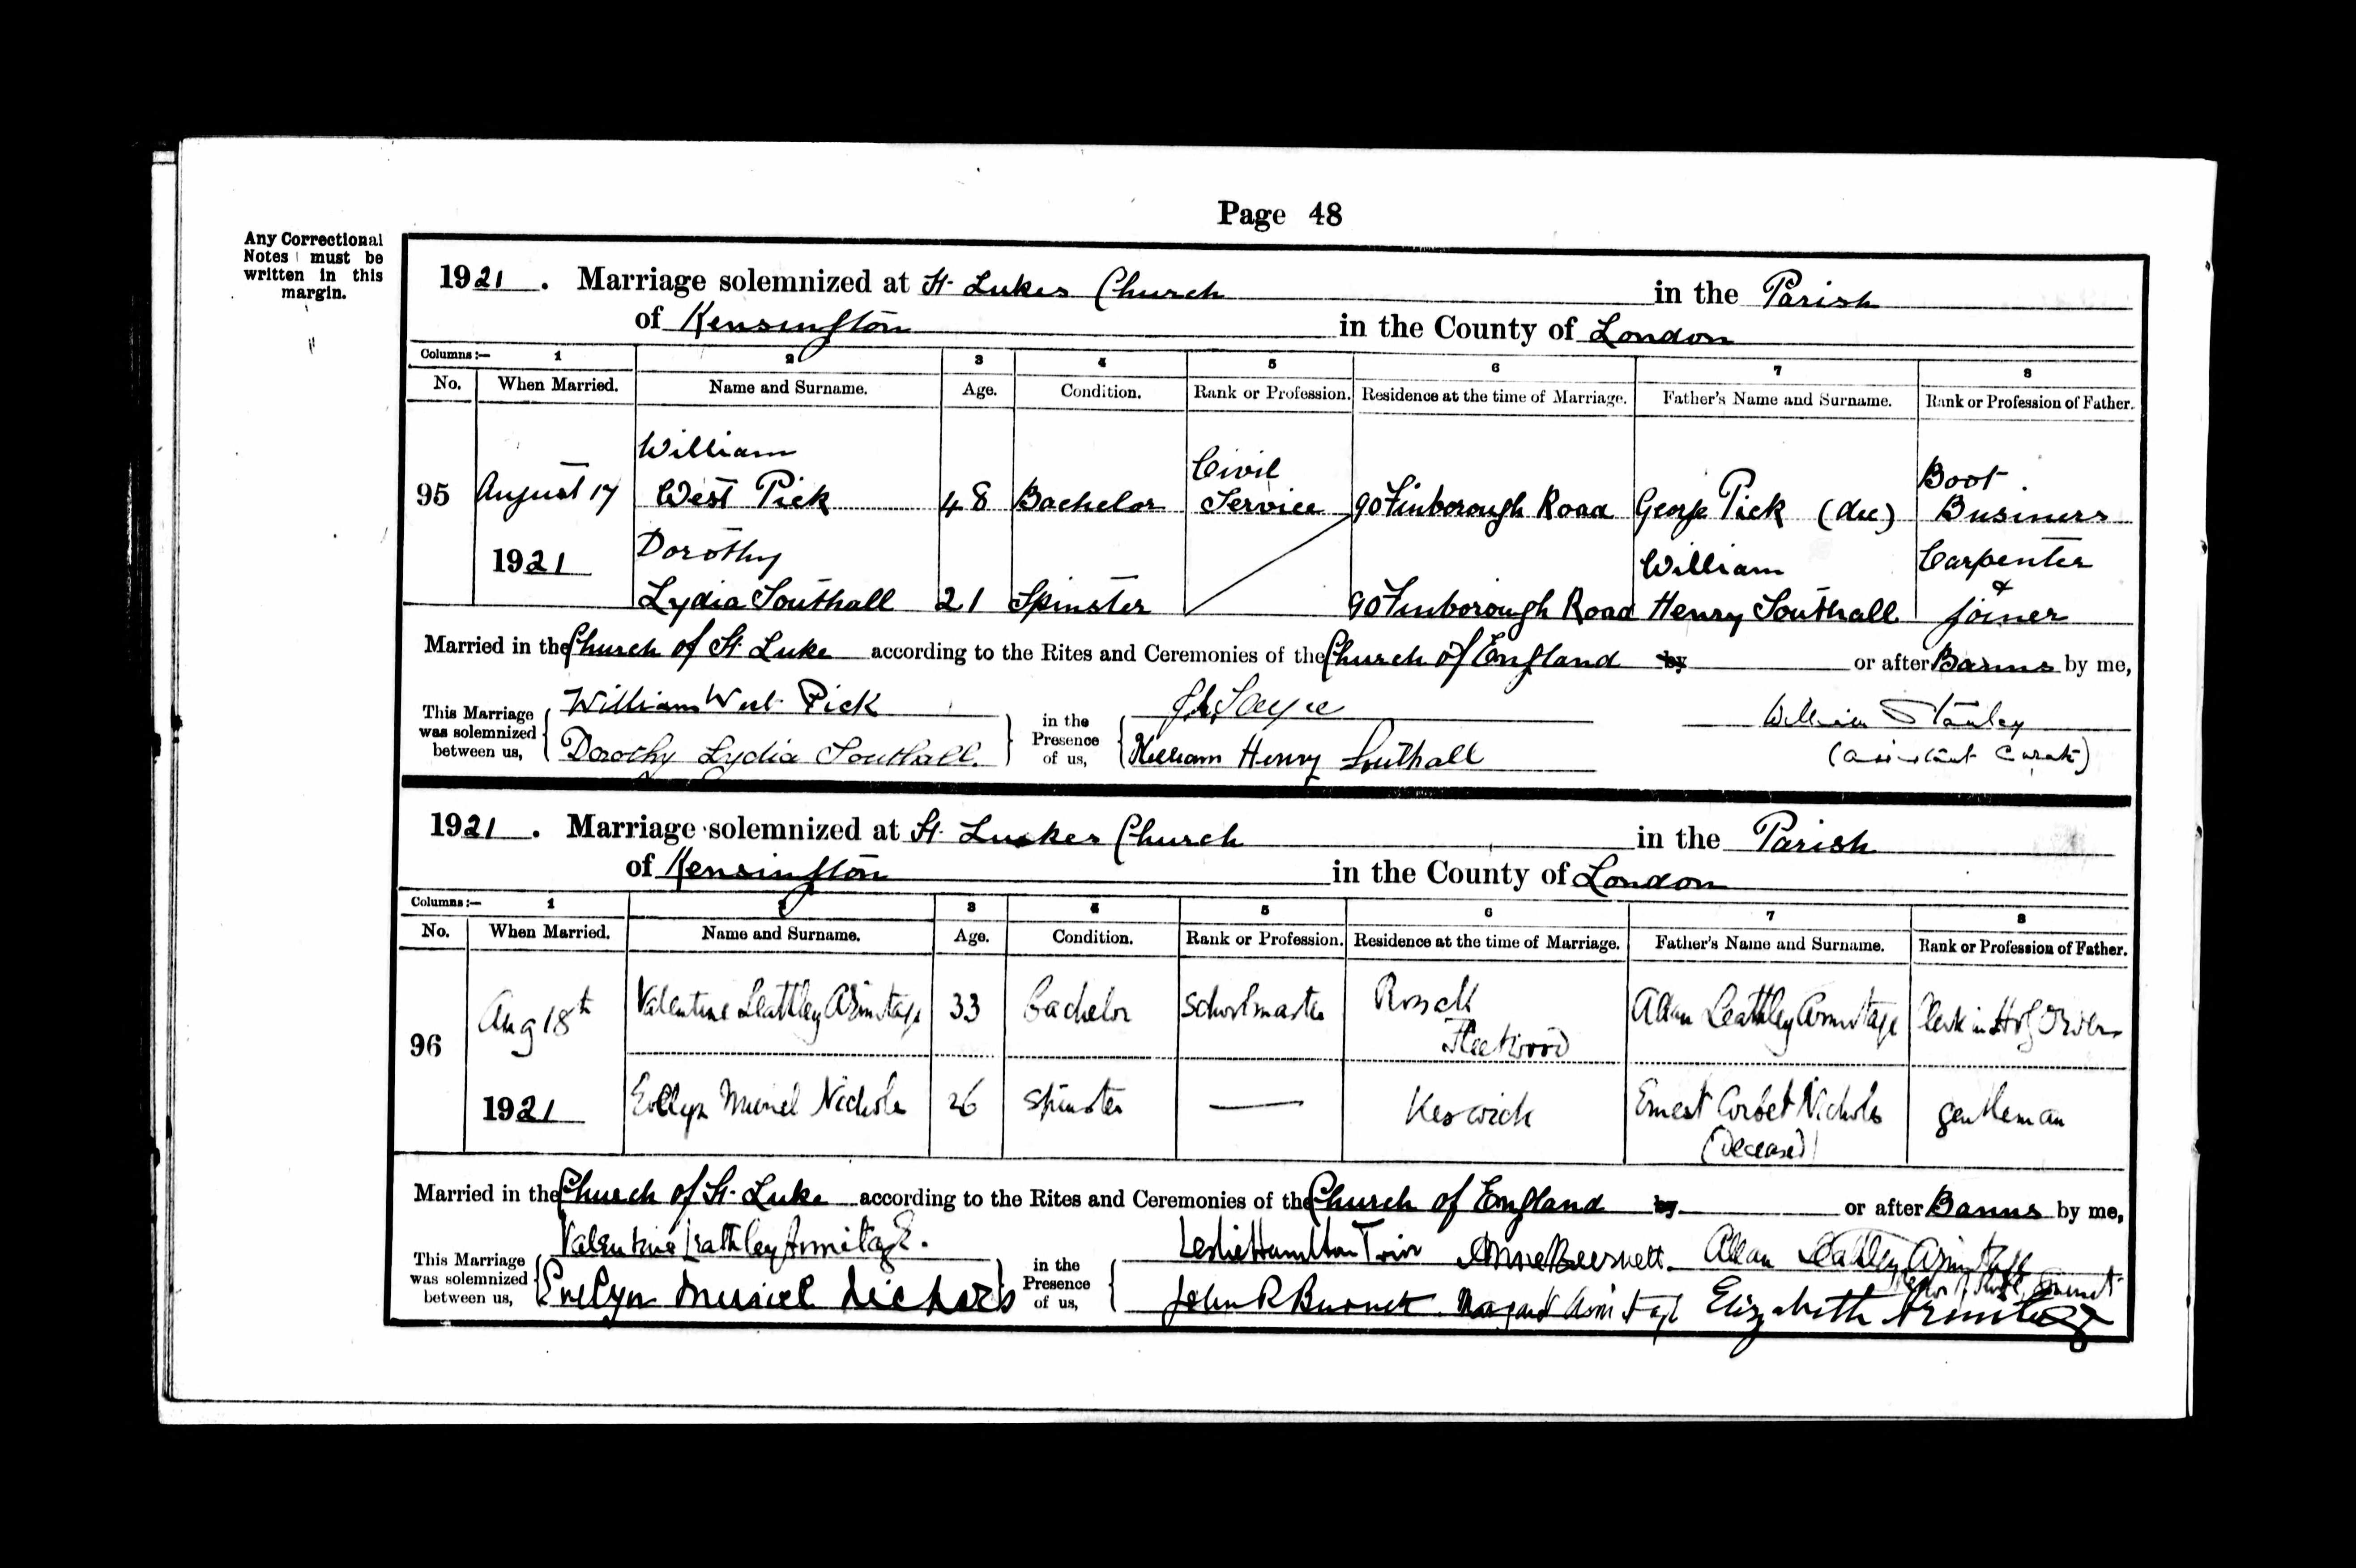 Page 48
Any Correctional
Notes must be
written in this
margin.
1921. Marriage solemnized at St. Lukes Church in the Parish
of Kensington in the County of London
Columns :— 1 2 3 4 5 6 7 8
No. When Married. Name and Surname. Age. Condition. Rank or Profession. Residence at the time of Marriage. Father's Name and Surname. Rank or Profession of Father.
William Civil Boot
95 August 17 West Pick 48 Bachelor Service 90 Finborough Road George Pick (dec) Business
1921 Dorothy William Carpenter &
Lydia Southall 21 Spinster 90 Finborough Road Henry Southall joiner
Married in the Church of St. Luke according to the Rites and Ceremonies of the Church of England by or after Banns by me,
This Marriage
was solemnized
between us,
William West Pick
Dorothy Lydia Southall.
in the
Presence
of us,
William Henry Southall
William Stanley
(assistant Curate)
1921. Marriage solemnized at St. Lukes Church in the Parish
of Kensington in the County of London
Columns :— 1 2 3 4 5 6 7 8
No. When Married. Name and Surname. Age. Condition. Rank or Profession. Residence at the time of Marriage. Father's Name and Surname. Rank or Profession of Father.
96 Aug 18th Valentine Leathley Armitage 33 Bachelor Schoolmaster Rossall Fleetwood Allan Leathley Armitage Clerk in Holy Orders
1921 Evelyn Muriel Nichols 26 Spinster — Keswick Ernest Corbet Nichols (Deceased) gentleman
Married in the Church of St. Luke according to the Rites and Ceremonies of the Church of England by or after Banns by me,
This Marriage
was solemnized
between us,
Valentine Leathley Armitage.
Evelyn Muriel Nichols
in the
Presence
of us,
Leslie Hamilton Anne Burnett. Allan Leathley Armitage
John R Burnett Margaret Armitage Elizabeth Armitage